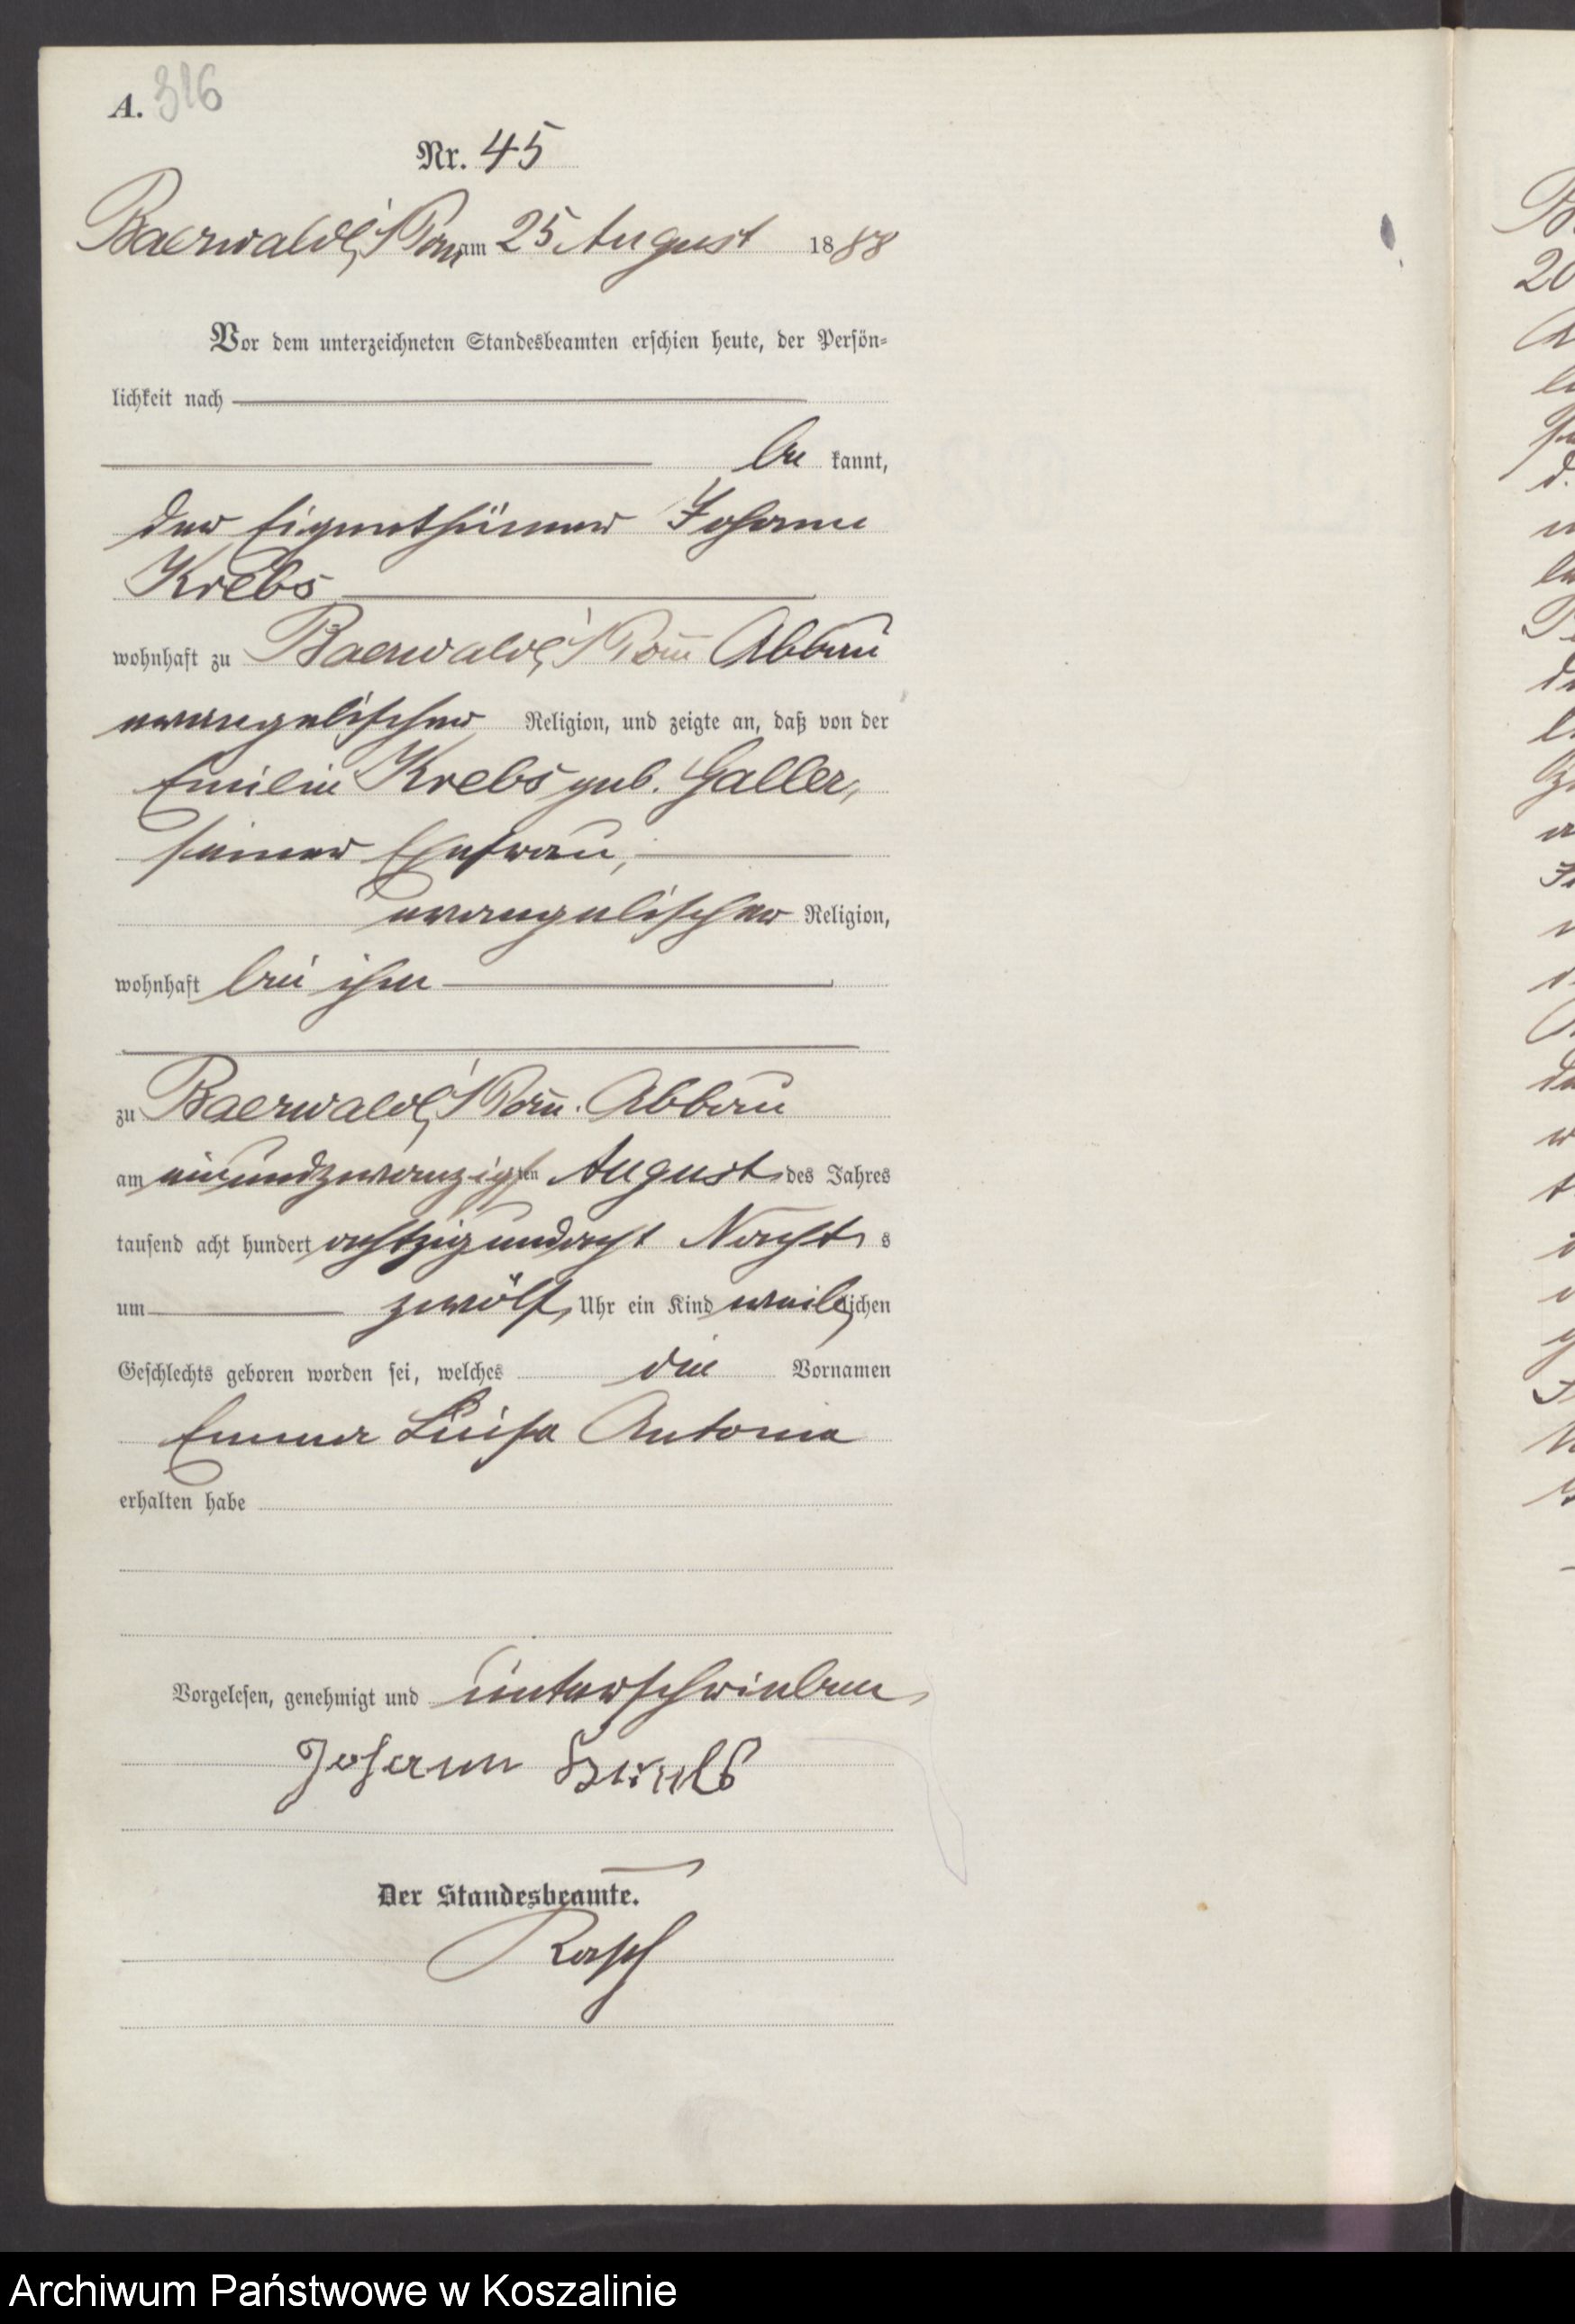 A. 316
Nr. 45
Baerwalde i/Pom am 25 August 1888
Vor dem unterzeichneten Standesbeamten erschien heute, der Persön-
lichkeit nach
be kannt,
der Eigenthümer Johann
Krebs
wohnhaft zu Baerwalde i/Pom Abbau
evangelischer Religion, und zeigte an, daß von der
Emilie Krebs geb. Galler,
seiner Ehefrau,
evangelischer Religion,
wohnhaft bei ihm
zu Baerwalde i/Pom. Abbau
am einundzwanzigsten August des Jahres
tausend acht hundert achtzigundacht Nachts
um zwölf Uhr ein Kind weiblichen
Geschlechts geboren worden sei, welches die Vornamen
Emma Luise Antonia
erhalten habe
Vorgelesen, genehmigt und unterschrieben
Johann Krebs
Der Standesbeamte.
Archiwum Państwowe w Koszalinie